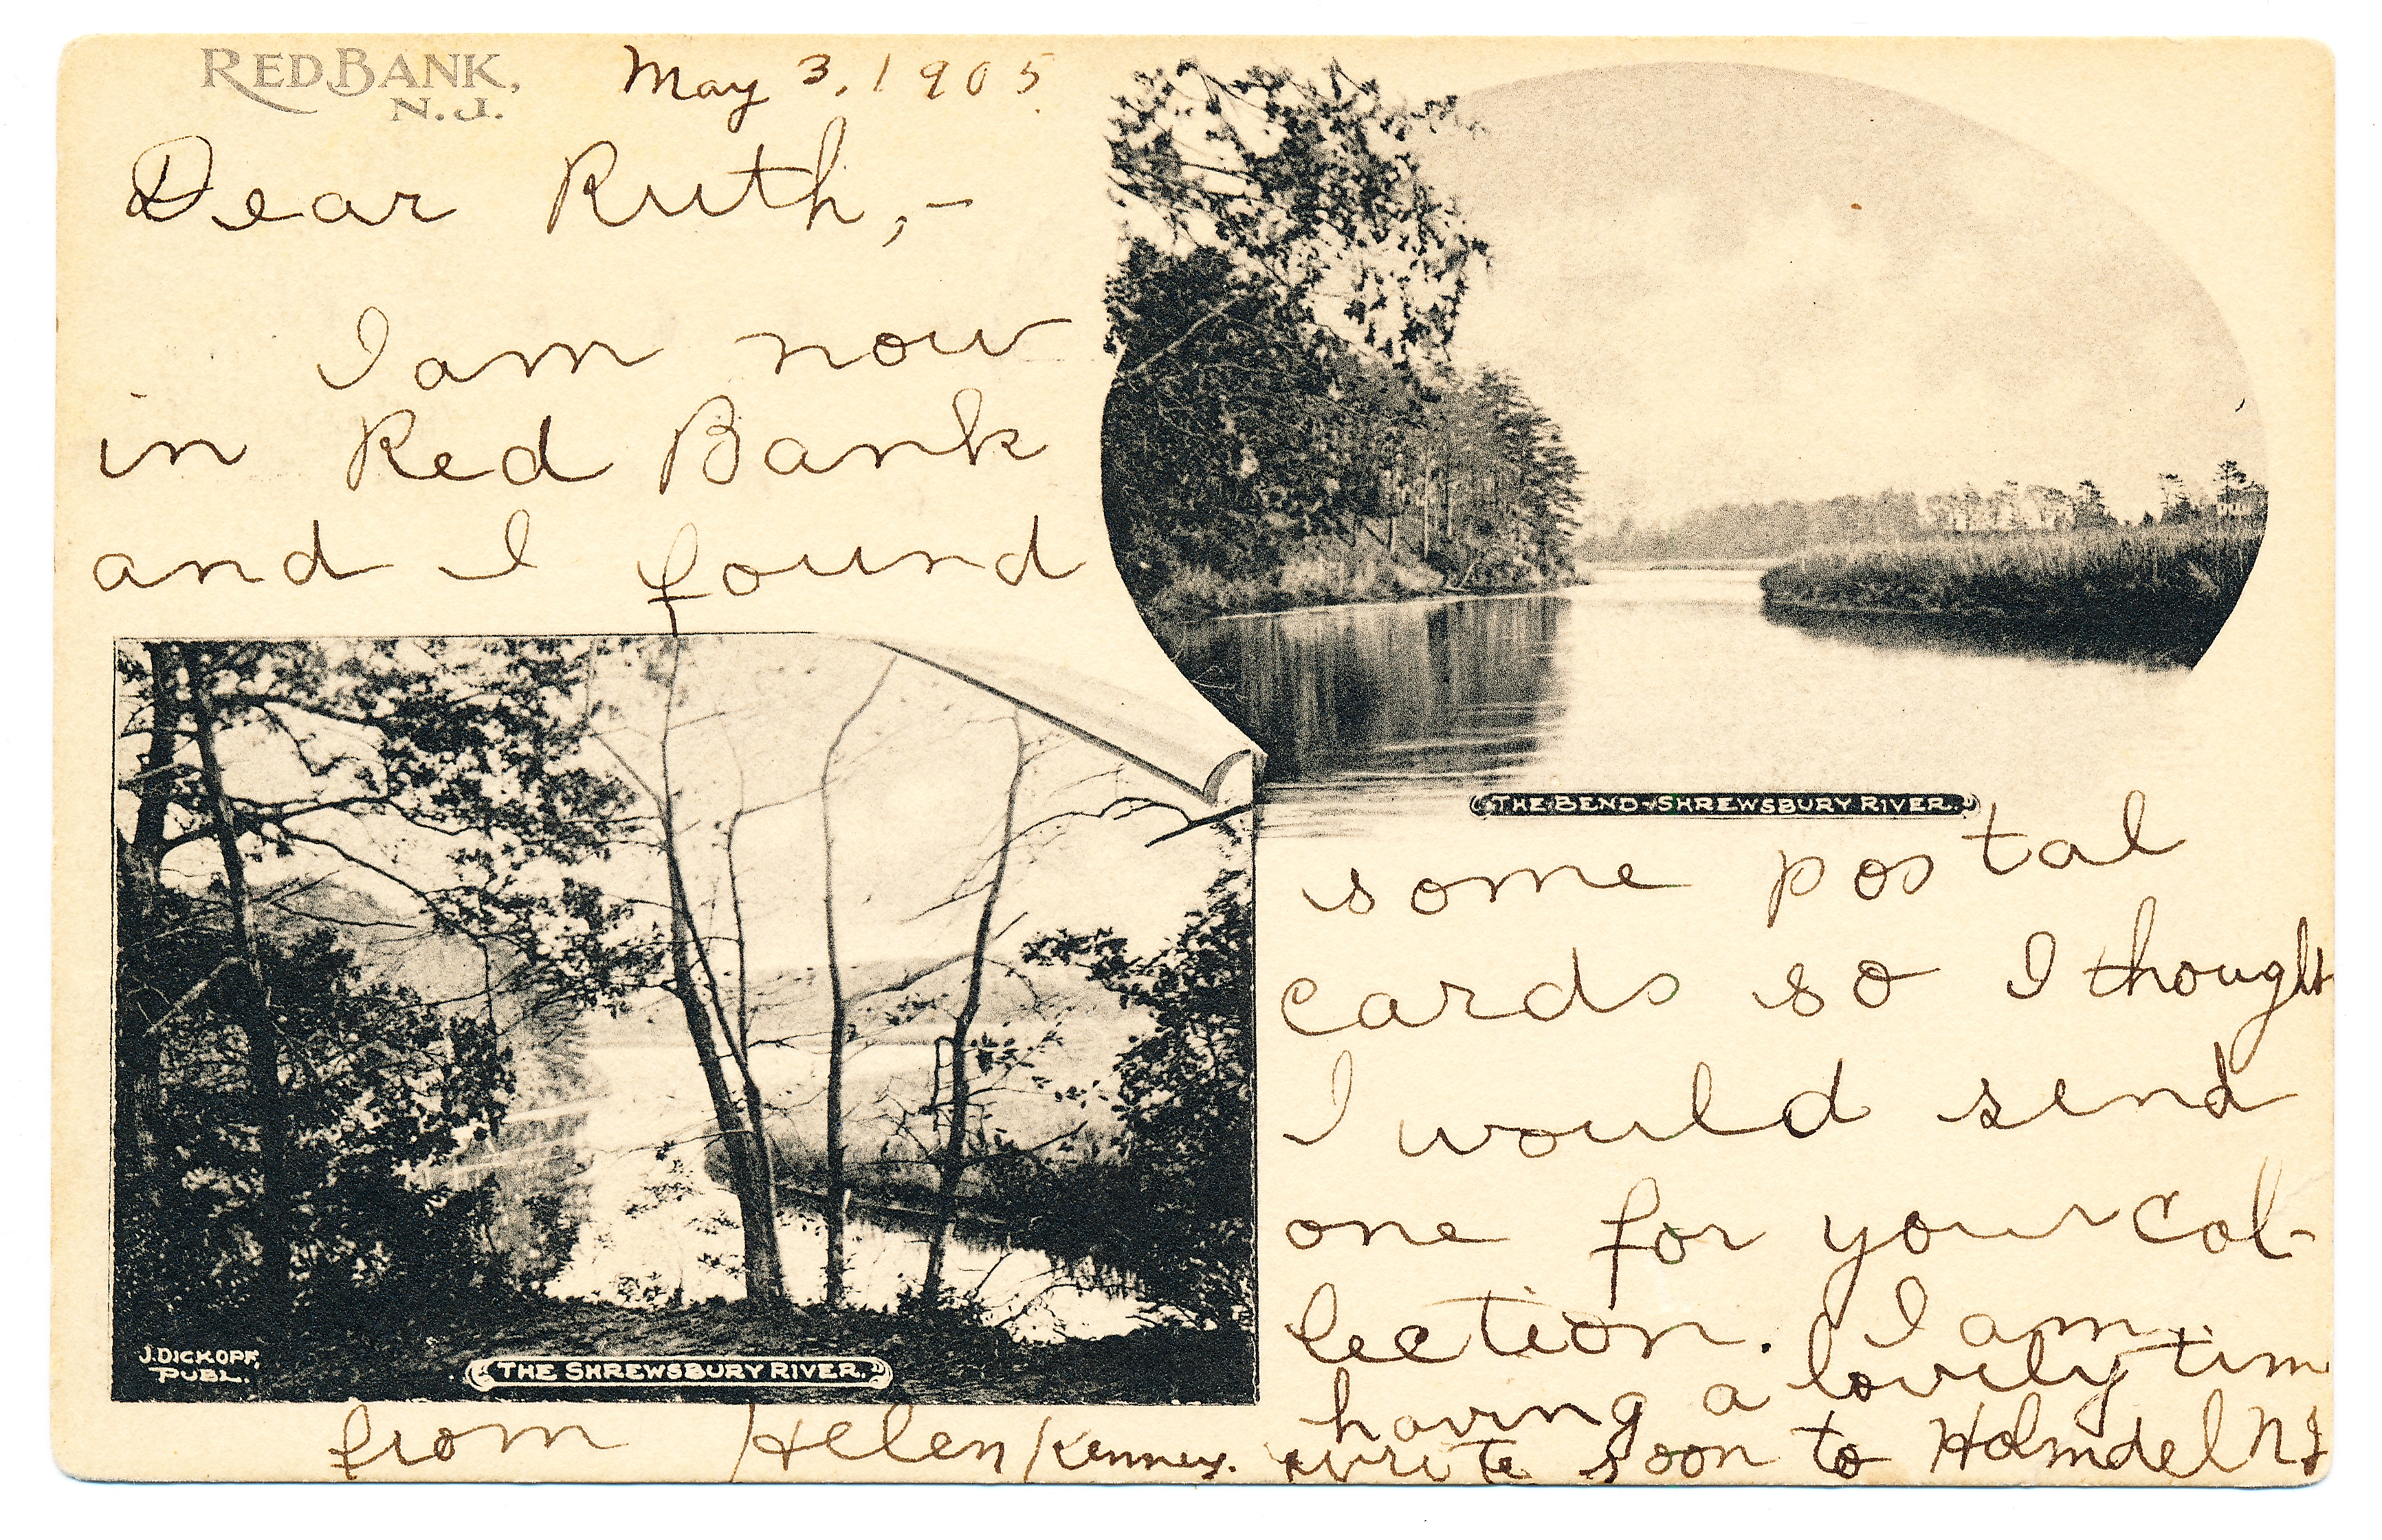 RED BANK,
N. J.
May 3, 1905.
Dear Ruth,-
I am now
in Red Bank
and I found
THE BEND-SHREWSBURY RIVER.
some postal
cards so I thought
I would send
one for your col-
lection. I am
having a lovely tim
write soon to Holmdel NJ
J. DICKOPF,
PUBL.
THE SHREWSBURY RIVER.
from Helen